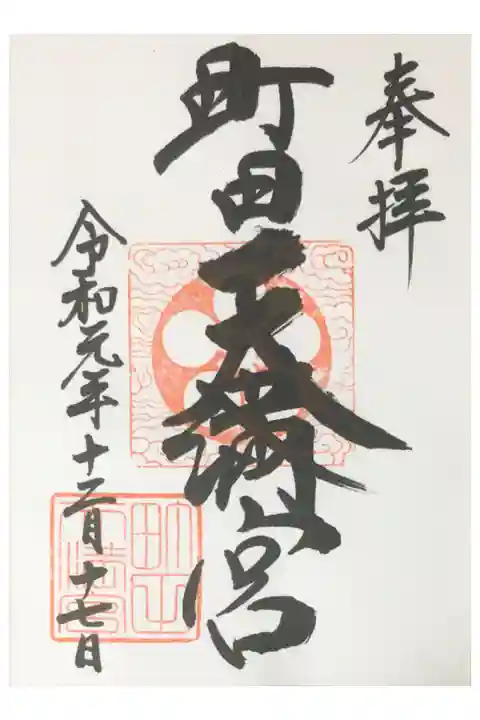 奉拝
町田天満宮
令和元年十二月十七日